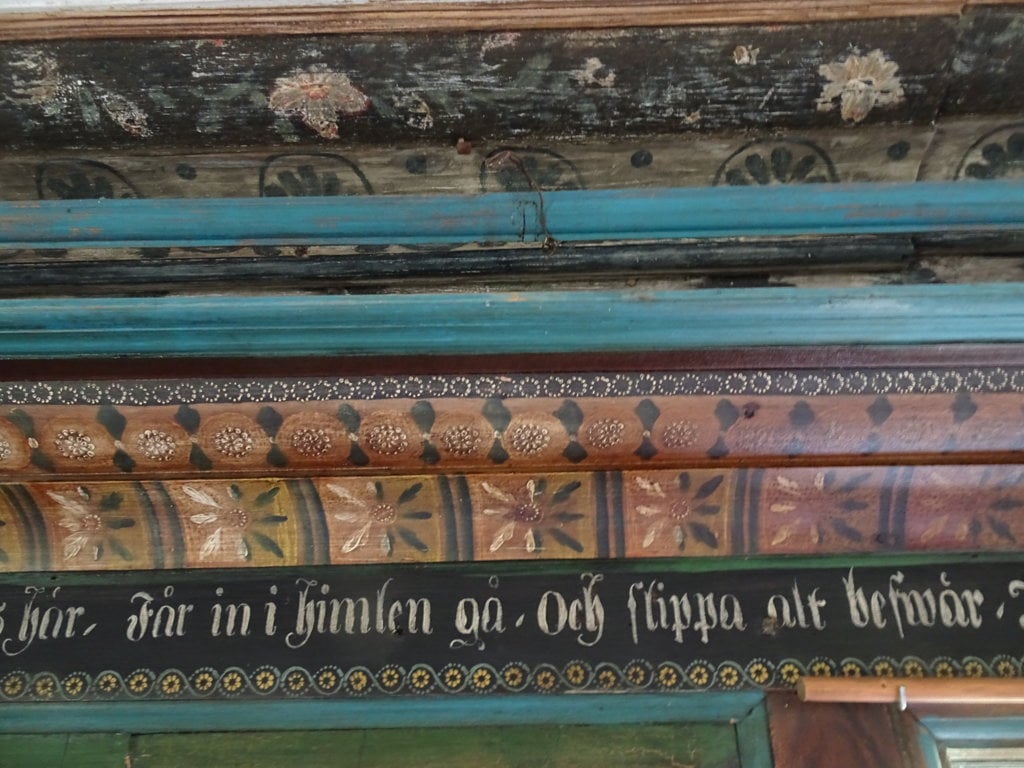 här, Får in i himlen gå. Och slippa alt beswär.